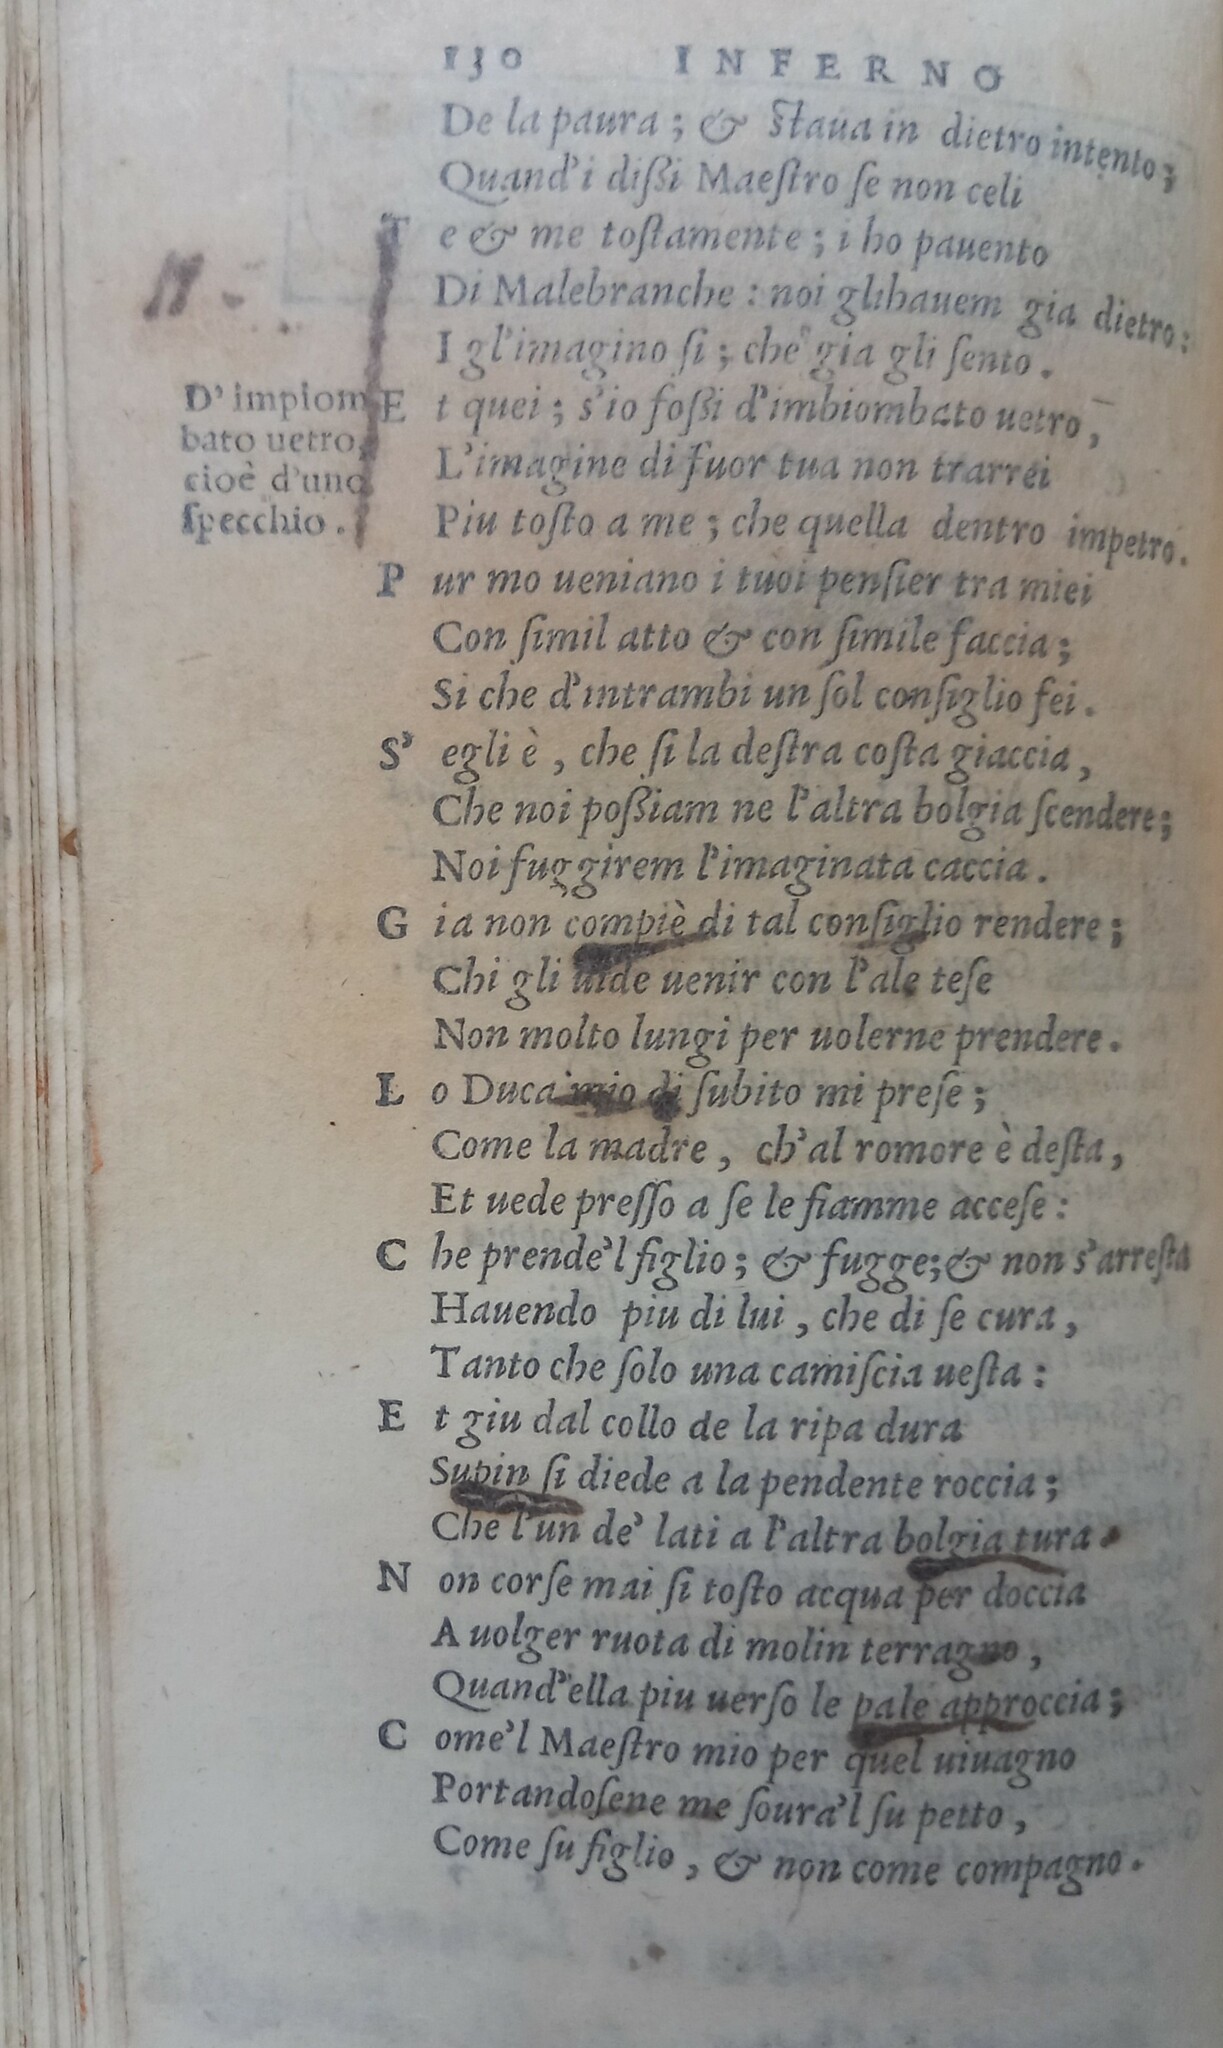 130 INFERNO
De la paura; & ſtaua in dietro intento;
Quand'i dißi Maeſtro ſe non celi
T e & me toſtamente; i ho pauento
Di Malebranche: noi glihauem gia dietro:
I gl'imagino ſi; che gia gli ſento.
D'impiom
bato uetro,
cioè d'uno
ſpecchio.
E t quei; s'io foßi d'imbiombato uetro,
L'imagine di fuor tua non trarrei
Piu toſto a me; che quella dentro impetro.
P ur mo ueniano i tuoi penſier tra miei
Con ſimil atto & con ſimile faccia;
Si che d'intrambi un ſol conſiglio fei.
S' egli è, che ſi la deſtra coſta giaccia,
Che noi poßiam ne l'altra bolgia ſcendere;
Noi fuggirem l'imaginata caccia.
G ia non compiè di tal conſiglio rendere;
Chi gli uide uenir con l'ale teſe
Non molto lungi per uolerne prendere.
L o Duca mio di ſubito mi preſe;
Come la madre, ch'al romore è deſta,
Et uede preſſo a ſe le fiamme acceſe:
C he prende'l figlio; & fugge; & non s'arreſta
Hauendo piu di lui, che di ſe cura,
Tanto che ſolo una camiſcia ueſta:
E t giu dal collo de la ripa dura
Supin ſi diede a la pendente roccia;
Che l'un de' lati a l'altra bolgia tura.
N on corſe mai ſi toſto acqua per doccia
A uolger ruota di molin terragno,
Quand'ella piu uerſo le pale approccia;
C ome'l Maeſtro mio per quel uiuagno
Portandoſene me ſoura'l ſu petto,
Come ſu figlio, & non come compagno.